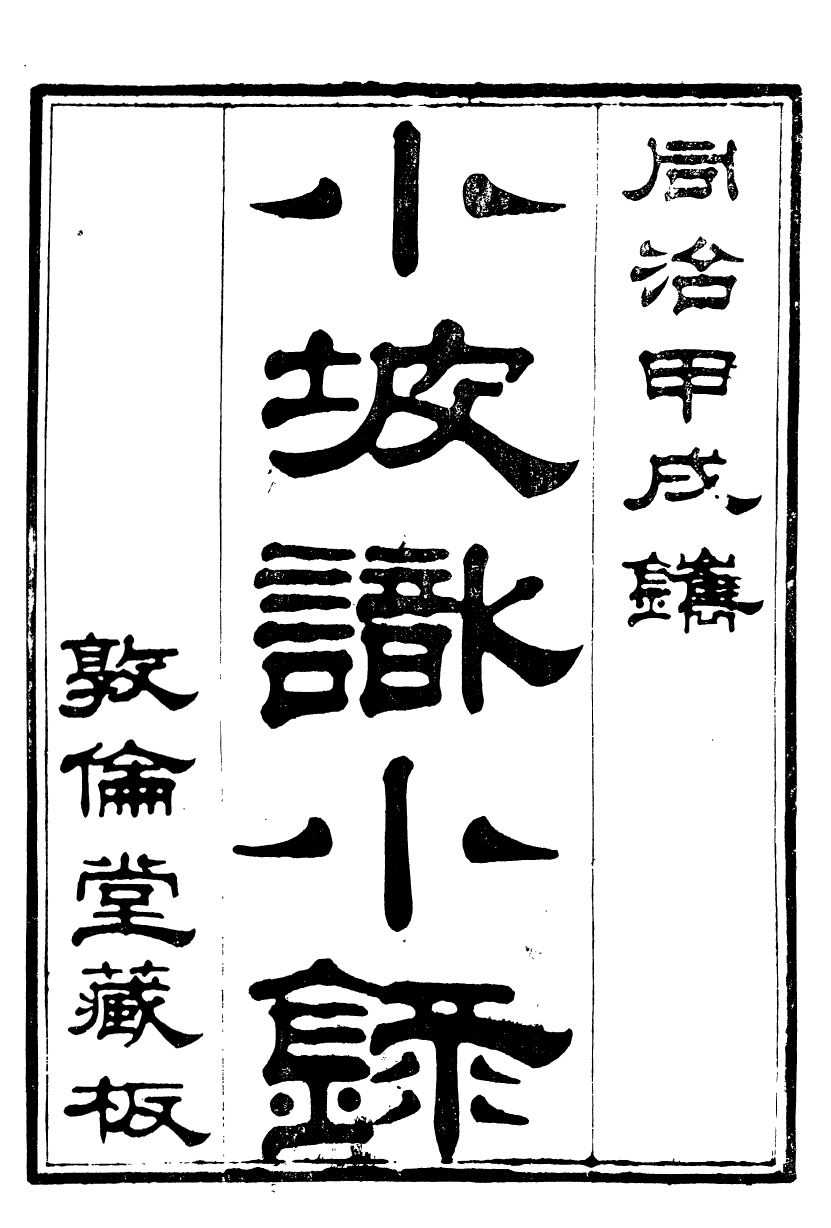 同治甲戌鐫
小坡識小錄
敦倫堂藏板